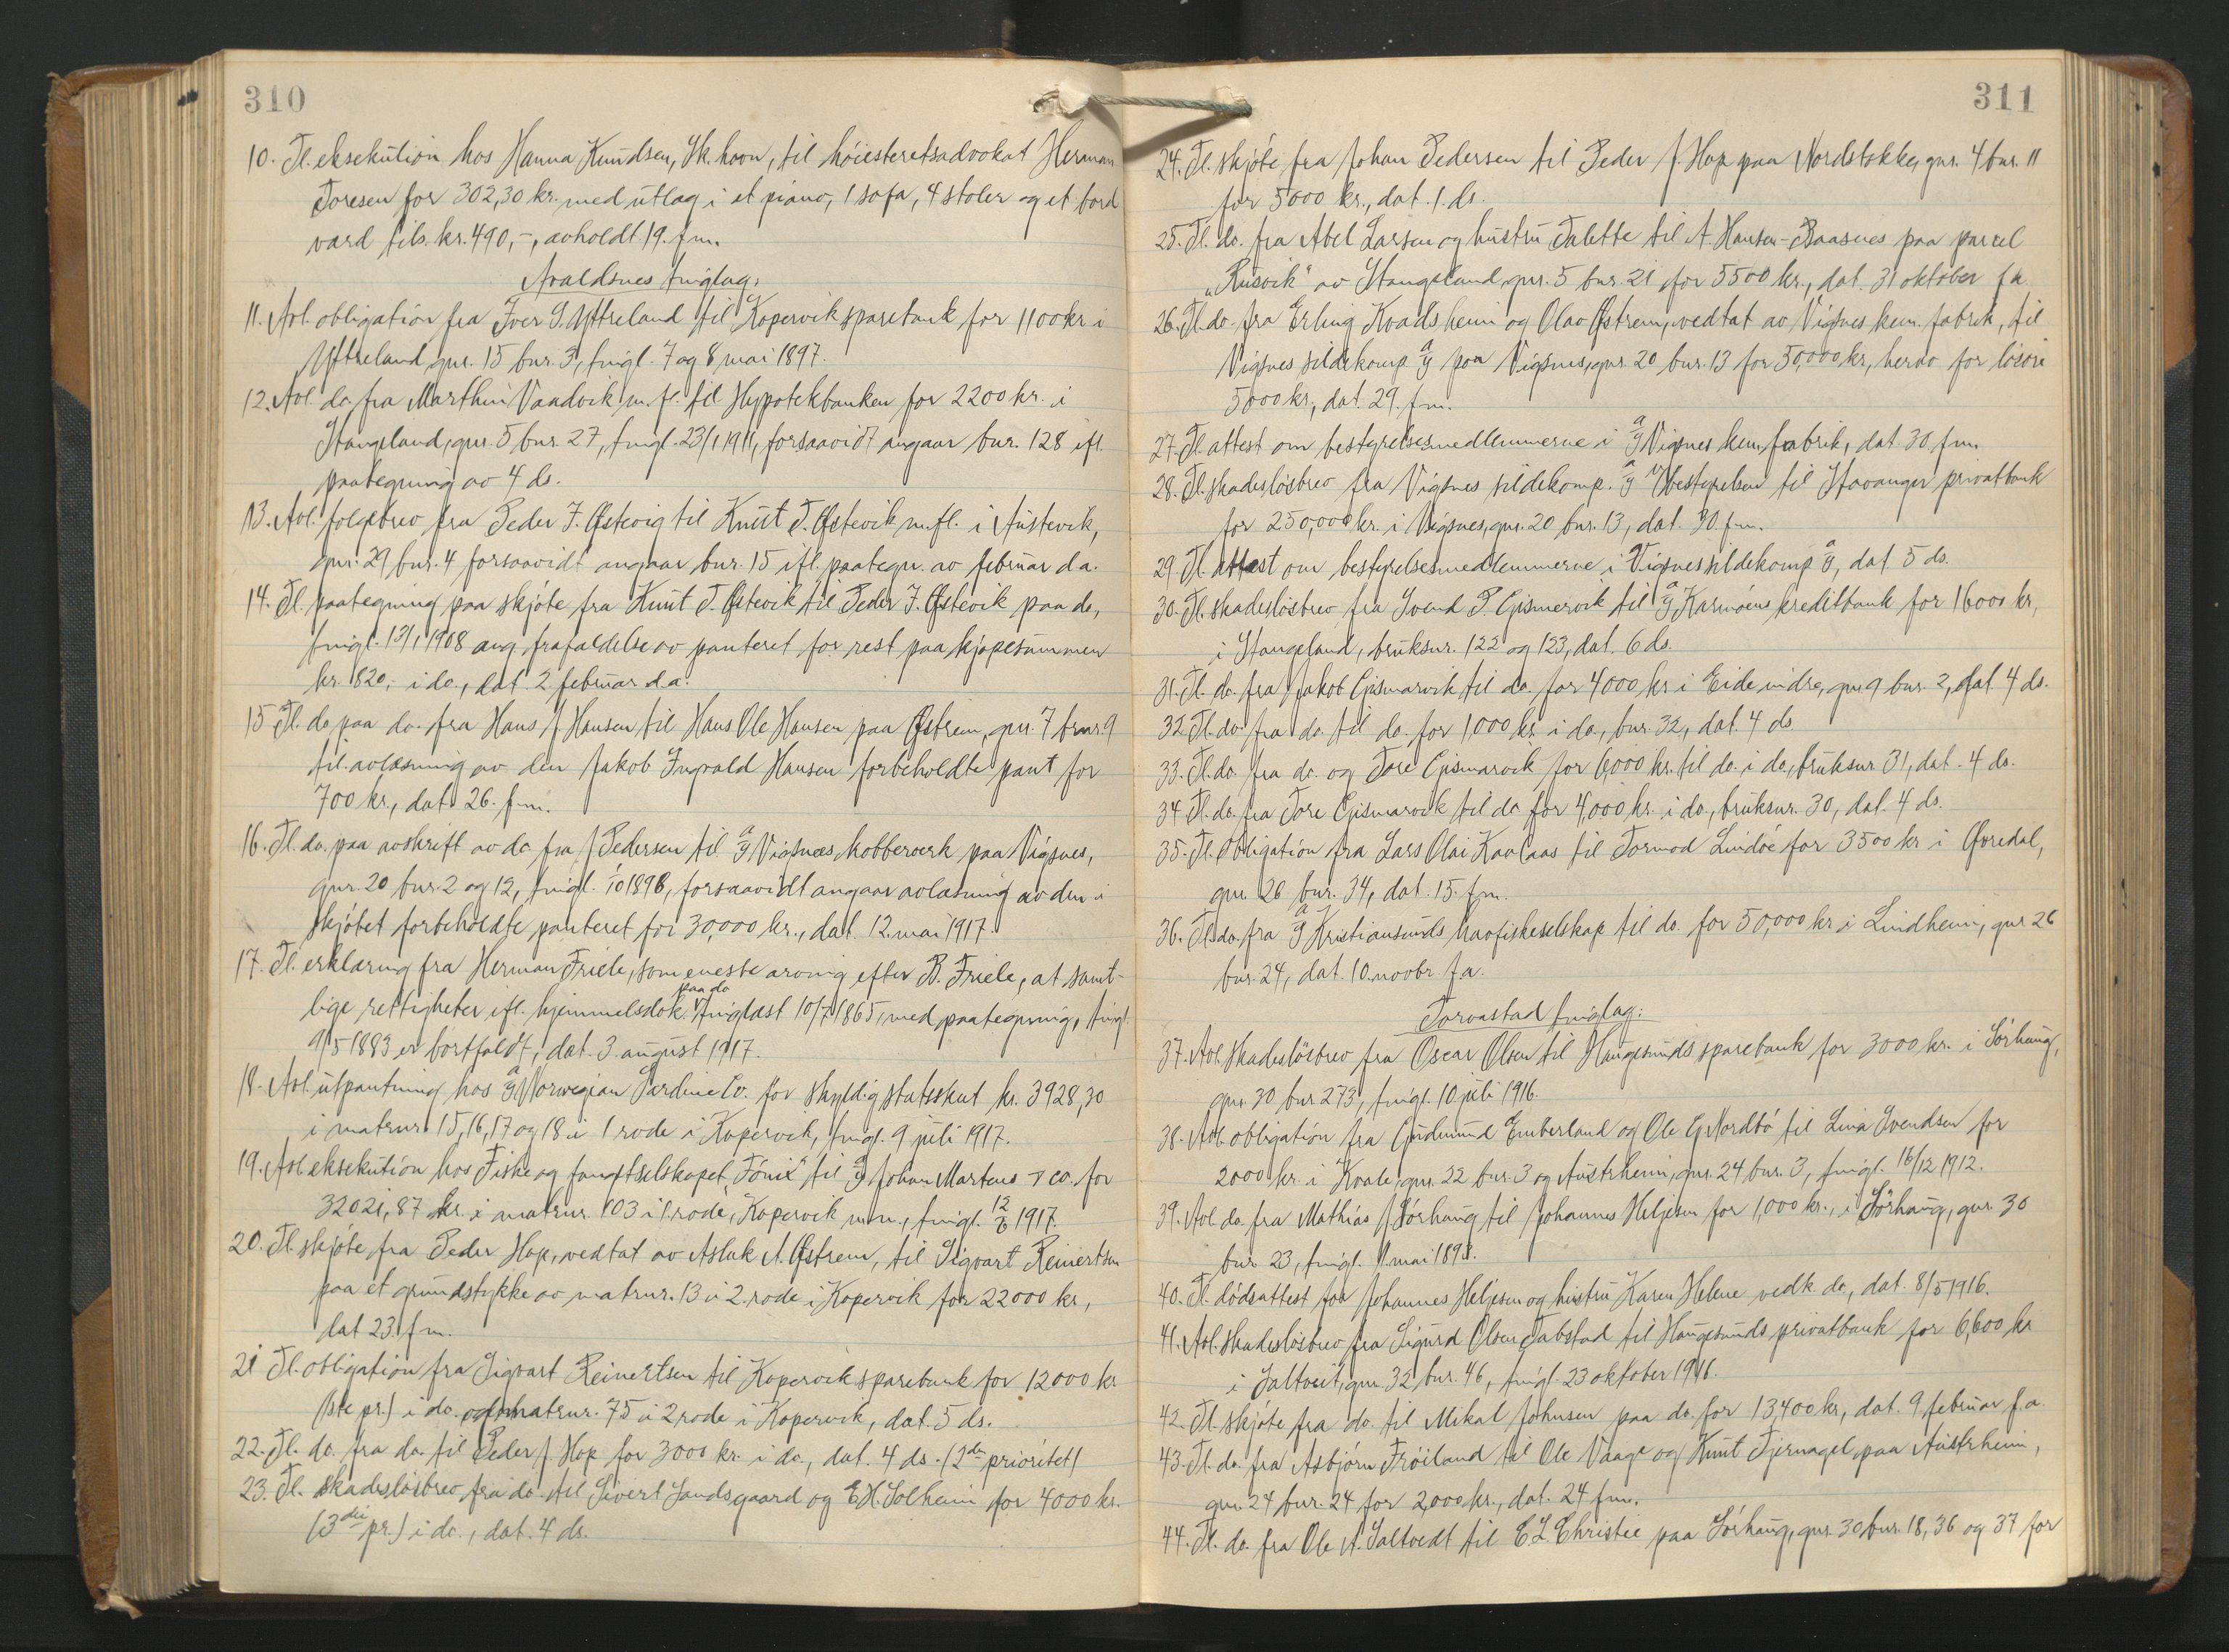 310
10. Tl. eksekution hos Hanna Knudsen, Sk.havn, til höiesteretsadvokat Herman
Toresen for 302,30 kr. med utlæg i et piano, 1 sofa, 4 stoler og et bord
værd tils. kr. 490,-, avholdt 19. f.m.
Avaldsnes tinglag:
11. Avl. obligation fra Iver S. Yttreland til Kopervik sparebank for 1100 kr. i
Yttreland, gnr. 15 bnr. 3, tingl. 7 og 8 mai 1897.
12. Avl. do. fra Marthin Vandvik m.fl. til Hypotekbanken for 2200 kr. i
Stangeland, gnr. 5 bnr. 27, tingl. 23/1 1911, forsaavidt angaar bnr. 128 ifl.
paategning av 4 ds.
13. Avl. følgebrev fra Peder J. Østevig til Knut T. Østevik m.fl. i Austevik,
gnr. 29 bnr. 4 forsaavidt angaar bnr. 15 ifl. paategn. av februar d.a.
14. Tl. paategning paa skjöte fra Knut T. Østevik til Peder J. Østevik paa do,
tingl. 13/1 1908 ang. frafaldelse av panteret for rest paa kjøpesummen
kr. 820,- i do., dat. 2 februar d.a.
15 Tl. do paa do. fra Hans J. Hansen til Hans Ole Hansen paa Østrem, gnr. 7 bnr. 9
til avlæsning av den Jakob Ingvald Hansen forbeholdte pant for
700 kr., dat. 26. f.m.
16. Tl. do. paa avskrift av do fra J Pedersen til A/S Vigsnæs kobberverk paa Vigsnes,
gnr. 20 bnr. 2 og 12, tingl. 1898, forsaavidt angaar avlæsning av den i
skjötet forbeholdte panteret for 30,000 kr., dat. 12. mai 1917.
17. Tl. erklæring fra Herman Friele, som eneste arving efter B. Friele, at samt-
lige rettigheter ifl. hjemmelsdok. paa do tinglæst 10/7 1865, med paategning, tingl.
9/5 1883 er bortfaldt, dat. 3. august 1917.
18. Avl. utpantning hos A/S Norwegian Sardine Co. for skyldig statsskat kr. 3928,30
i matrnr. 15, 16, 17 og 18 i 1 rode i Kopervik, tingl. 9 juli 1917.
19. Avl. eksekution hos Fiske og fangstselskapet "Fönix" til A/S Johan Martens & co. for
32021,87 kr. i matrnr. 103 i 1. rode, Kopervik m.m., tingl. 12/6 1917.
20. Tl. skjöte fra Peder Hop, vedtat av Aslak A. Østrem, til Sigvart Reinertsen
paa et grundstykke av matrnr. 13 i 2. rode i Kopervik for 22000 kr,
dat 23. f.m.
21 Tl. obligation fra Sigvart Reinertsen til Kopervik sparebank for 12000 kr
(1ste pr.) i do. og matrnr. 75 i 2 rode i Kopervik, dat. 5 ds.
22. Tl. do. fra do. til Peder J. Hop for 3000 kr. i do., dat. 4 ds. (2den prioritet)
23. Tl. skadeslösbrev fra do. til Sivert Sandsgaard og E.H. Solheim for 4000 kr.
(3die pr.) i do., dat. 4 ds.
311
24. Tl. skjöte fra Johan Pedersen til Peder J. Hop paa Nordstokke, gnr. 4 bnr. 11
for 5000 kr., dat. 1. ds.
25. Tl. do. fra Abel Larsen og hustru Talette til A. Hansen-Baasnes paa parcel
"Rusvik" av Stangeland, gnr. 5 bnr. 21 for 5500 kr., dat. 31 oktober f.a.
26. Tl. do. fra Erling Kvadsheim og Olav Østrem, vedtat av Vigsnes kem. fabrik, til
Vigsnes sildekomp. A/S paa Vigsnes, gnr. 20 bnr. 13 for 50,000 kr., herav for lösöre
5000 kr., dat. 29. f.m.
27. Tl. attest om bestyrelsesmedlemmerne i A/S Vigsnes kem. fabrik, dat. 30 f.m.
28. Tl. skadeslösbrev fra Vigsnes sildekomp. A/S v/bestyrelsen til Stavanger privatbank
for 250,000 kr. i Vigsnes, gnr. 20 bnr. 13, dat. 30 f.m.
29. Tl. attest om bestyrelsesmedlemmerne i Vigsnes sildekomp A/S, dat 5 ds.
30. Tl. skadeslösbrev fra Svend P. Gismervik til A/S Karmöens kreditbank for 16000 kr,
i Stangeland, bruksnr. 122 og 123, dat. 6 ds.
31. Tl. do. fra Jakob Gismarvik til do. for 4000 kr i Eide indre, gnr. 9 bnr. 2, dat 4 ds.
32 Tl. do. fra do. til do. for 1,000 kr. i do., bnr. 32, dat. 4 ds.
33. Tl. do. fra do. og Tore Gismarvik for 6,000 kr. til do. i do, bruksnr 31, dat. 4 ds.
34 Tl. do. fra Tore Gismarvik til do for 4,000 kr. i do., bruksnr. 30, dat. 4 ds.
35. Tl. obligation fra Lars Olai Kavlaas til Tormod Lindöe for 3500 kr i Øvredal,
gnr. 26 bnr. 34, dat. 15. f.m.
36. Tl. do. fra A/S Kristiansunds havfiskeselskap til do. for 50,000 kr i Lindheim, gnr 26
bnr. 24, dat. 10. novbr. f.a.
Torvastad tinglag:
37. Avl. skadeslösbrev fra Oscar Olsen til Haugesunds sparebank for 3000 kr. i Sörhaug,
gnr. 30 bnr 273, tingl. 10 juli 1916.
38. Avl. obligation fra Gudmund Emberland og Ole G. Nordbö til Lina Svendsen for
2000 kr. i Kvale, gnr. 22 bnr. 3 og Austrheim, gnr. 24 bnr. 3, tingl. 16/12 1912.
39. Avl. do. fra Mathias J Sörhaug til Johannes Heljesen for 1,000 kr., i Sörhaug, gnr. 30
bnr 23, tingl. mai 1893.
40. Tl. dödsattest for Johannes Heljesen og hustru Karen Helene vedk. do., dat. 8/5 1916.
41. Avl. skadeslösbrev fra Sigurd Olsen Fabstad til Haugesunds privatbank for 6,600 kr
i Saltveit, gnr. 32 bnr. 46, tingl. 23 oktober 1916.
42. Tl. skjöte fra do. til Mikal Johnsen paa do. for 13,400 kr, dat. 9 februar f.a.
43. Tl. do. fra Asbjörn Fröiland til Ole Vaage og Knut Tjernagel paa Austrheim,
gnr. 24 bnr. 24 for 2,000 kr., dat. 24 f.m.
44. Tl. do. fra Ole A. Saltvedt til C.L. Christie paa Sörhaug, gnr. 30 bnr. 18, 36 og 37 for